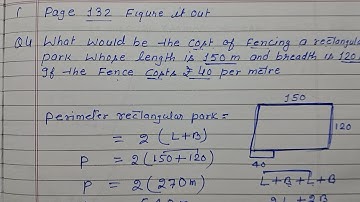 Page 132 Figure it out
Q4 What would be the cost of fencing a rectangular
park whose length is 150 m and breadth is 120
If the Fence costs ₹ 40 per metre
150
120
40
Perimeter rectangular park =
= 2 (L+B)
L+B+L+B
P = 2(150+120)
P = 2(270m)
2L + 2B